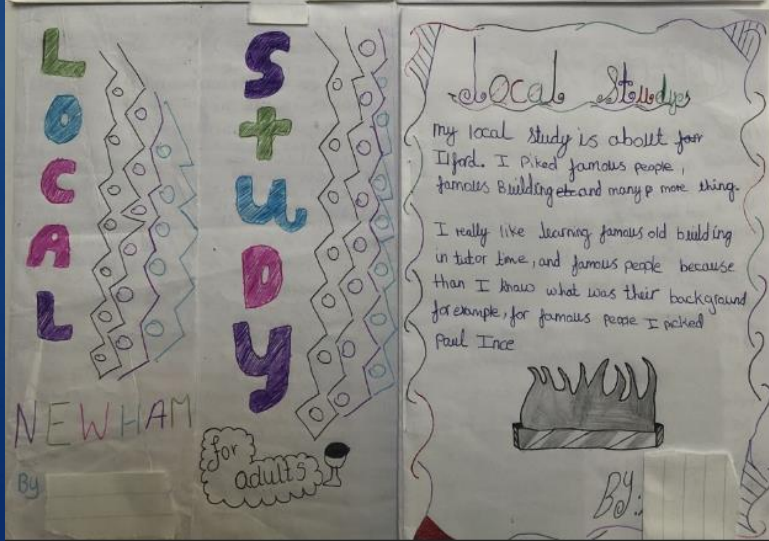 LOCAL
STUDY
NEWHAM
for
adults
By
Local Studys
My local study is about for
Ilford. I Piked famous people,
famous Building etc and many p more thing.
I really like learning famous old building
in tutor time, and famous people because
than I know what was their background
for example, for famous peope I picked
Paul Ince
By: